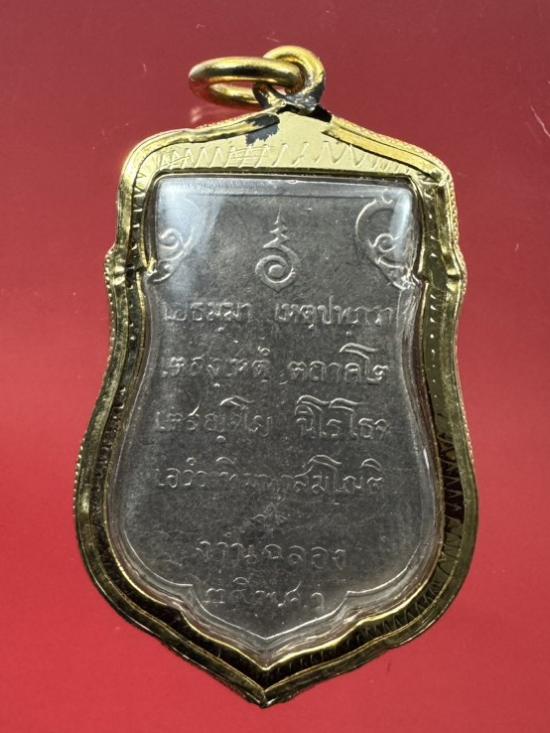 เยธมฺมา เหตุปฺปภวา
ตถาคโต
เตสญฺจโย นิโรโธจ
เอวํวาทีมหาสมโณติ
งานฉลอง